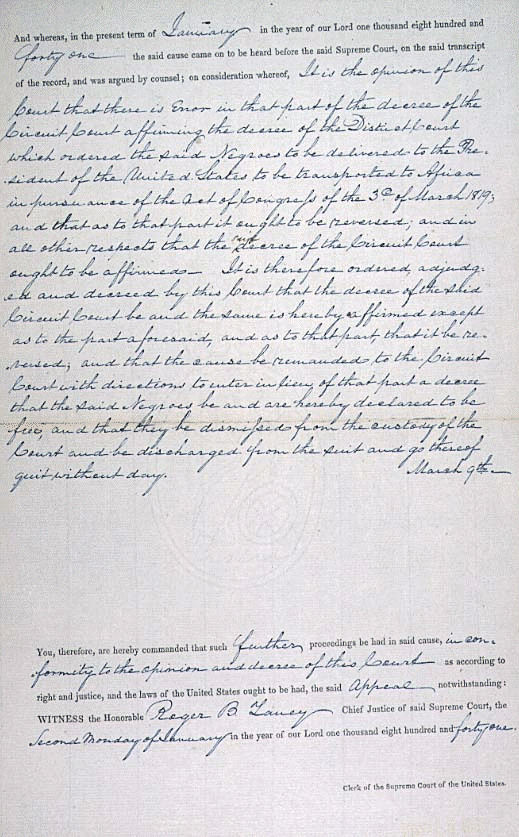 And whereas, in the present term of January in the year of our Lord one thousand eight hundred and
forty one the said cause came on to be heard before the said Supreme Court, on the said transcript
of the record, and was argued by counsel; on consideration whereof, It is the opinion of this
Court that there is Error in that part of the decree of the
Circuit Court affirming the decree of the District Court
which ordered the said Negroes to be delivered to the Pre-
sident of the United States to be transported to Africa
in pursuance of the act of Congress of the 3d of March 1819;
and that as to that part it ought to be reversed; and in
all other respects that the decree of the Circuit Court
ought to be affirmed- It is therefore ordered, adjudg-
ed and decreed by this Court that the decree of the said
Circuit Court be and the same is hereby affirmed except
as to the part aforesaid, and as to that part, that it be re-
versed; and that the cause be remanded to the Circuit
Court with directions to enter in lieu of that part a decree
that the said Negroes be and are hereby declared to be
free, and that they be dismissed from the custody of the
Court and be discharged from the suit and go thereof
quit without day. March 9th-
You, therefore, are hereby commanded that such further proceedings be had in said cause, in con-
formity to the opinion and decree of this Court as according to
right and justice, and the laws of the United States ought to be had, the said Appeal notwithstanding:
WITNESS the Honorable Roger B Taney Chief Justice of said Supreme Court, the
Second Monday of January in the year of our Lord one thousand eight hundred and forty one.
Clerk of the Supreme Court of the United States.